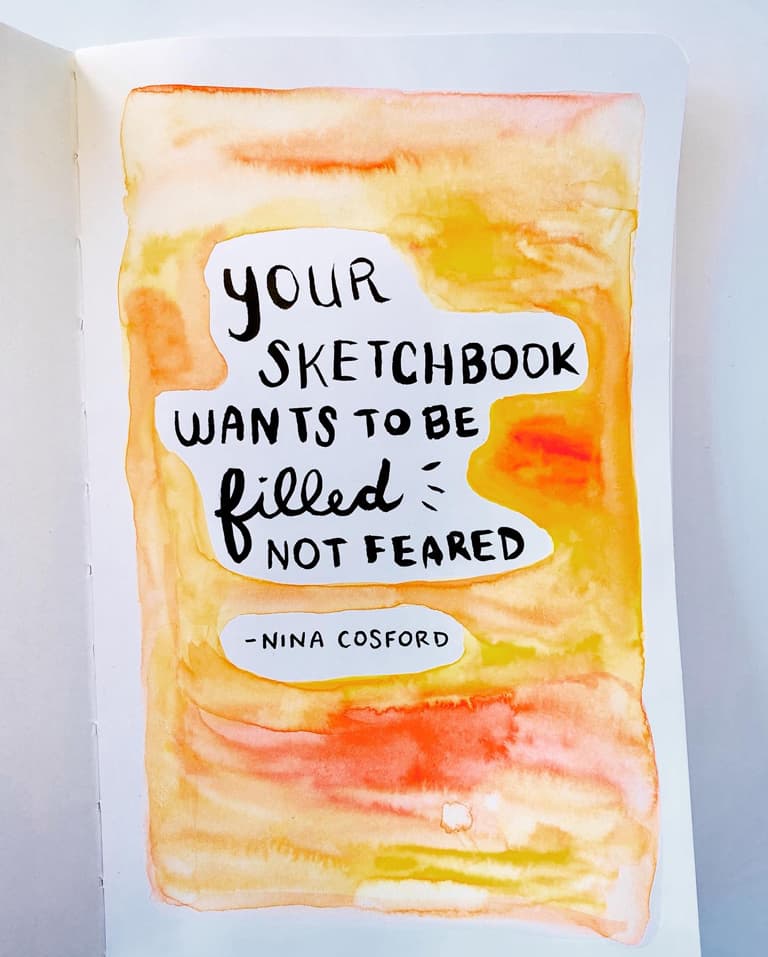 YOUR
SKETCHBOOK
WANTS TO BE
filled
NOT FEARED
-NINA COSFORD